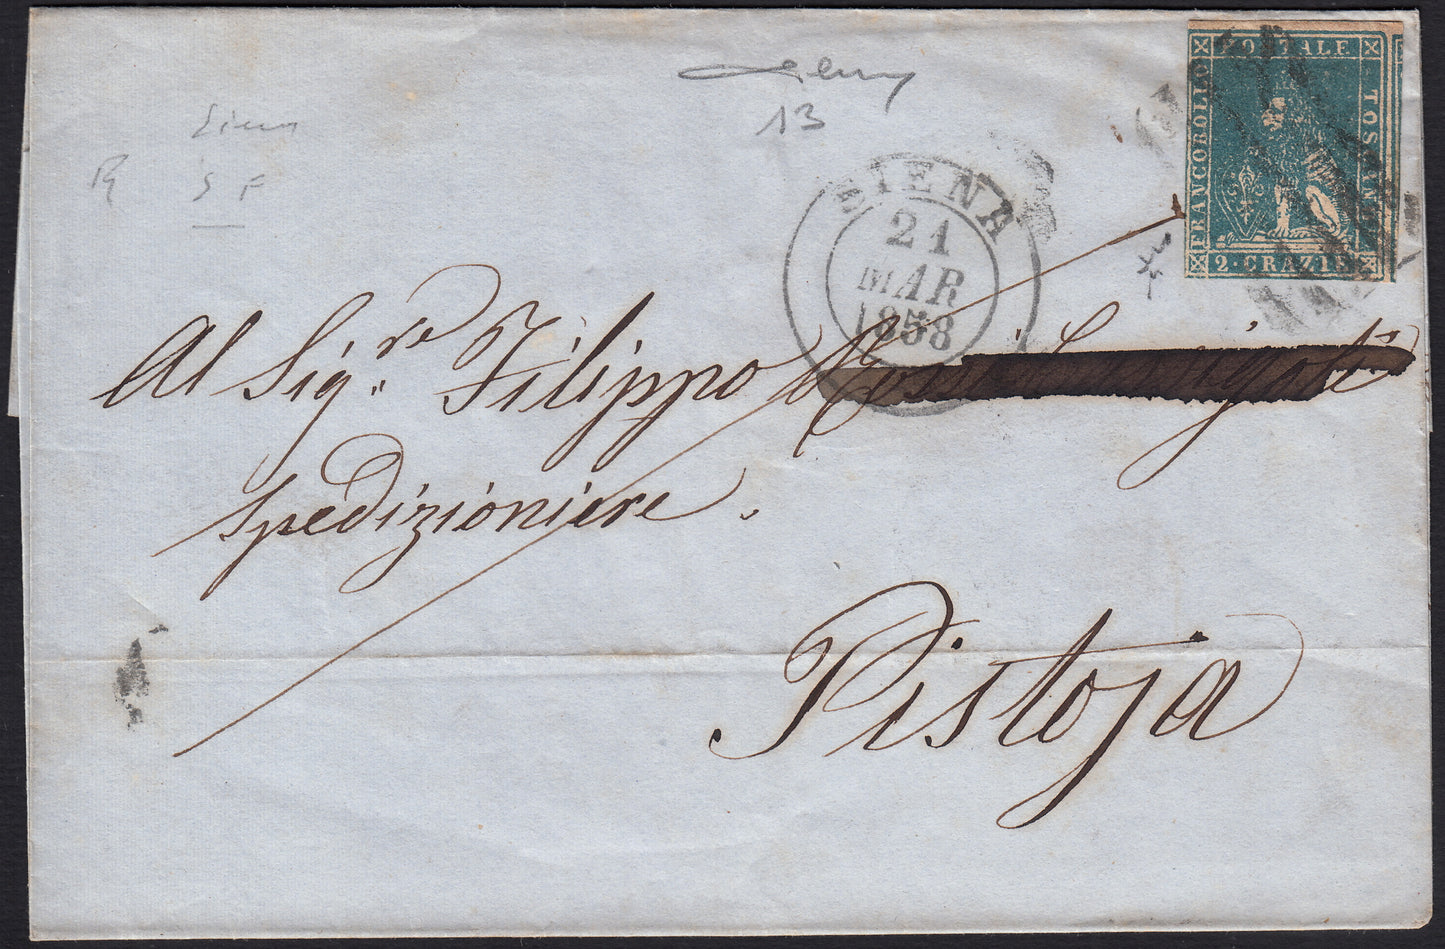 FRANCOBOLLO POSTALE TOSCANO
2 · CRAZIE
13
Siena
S F
SIENA
21
MAR
1858
Al Sig.re Filippo
Spedizioniere.
Pistoja